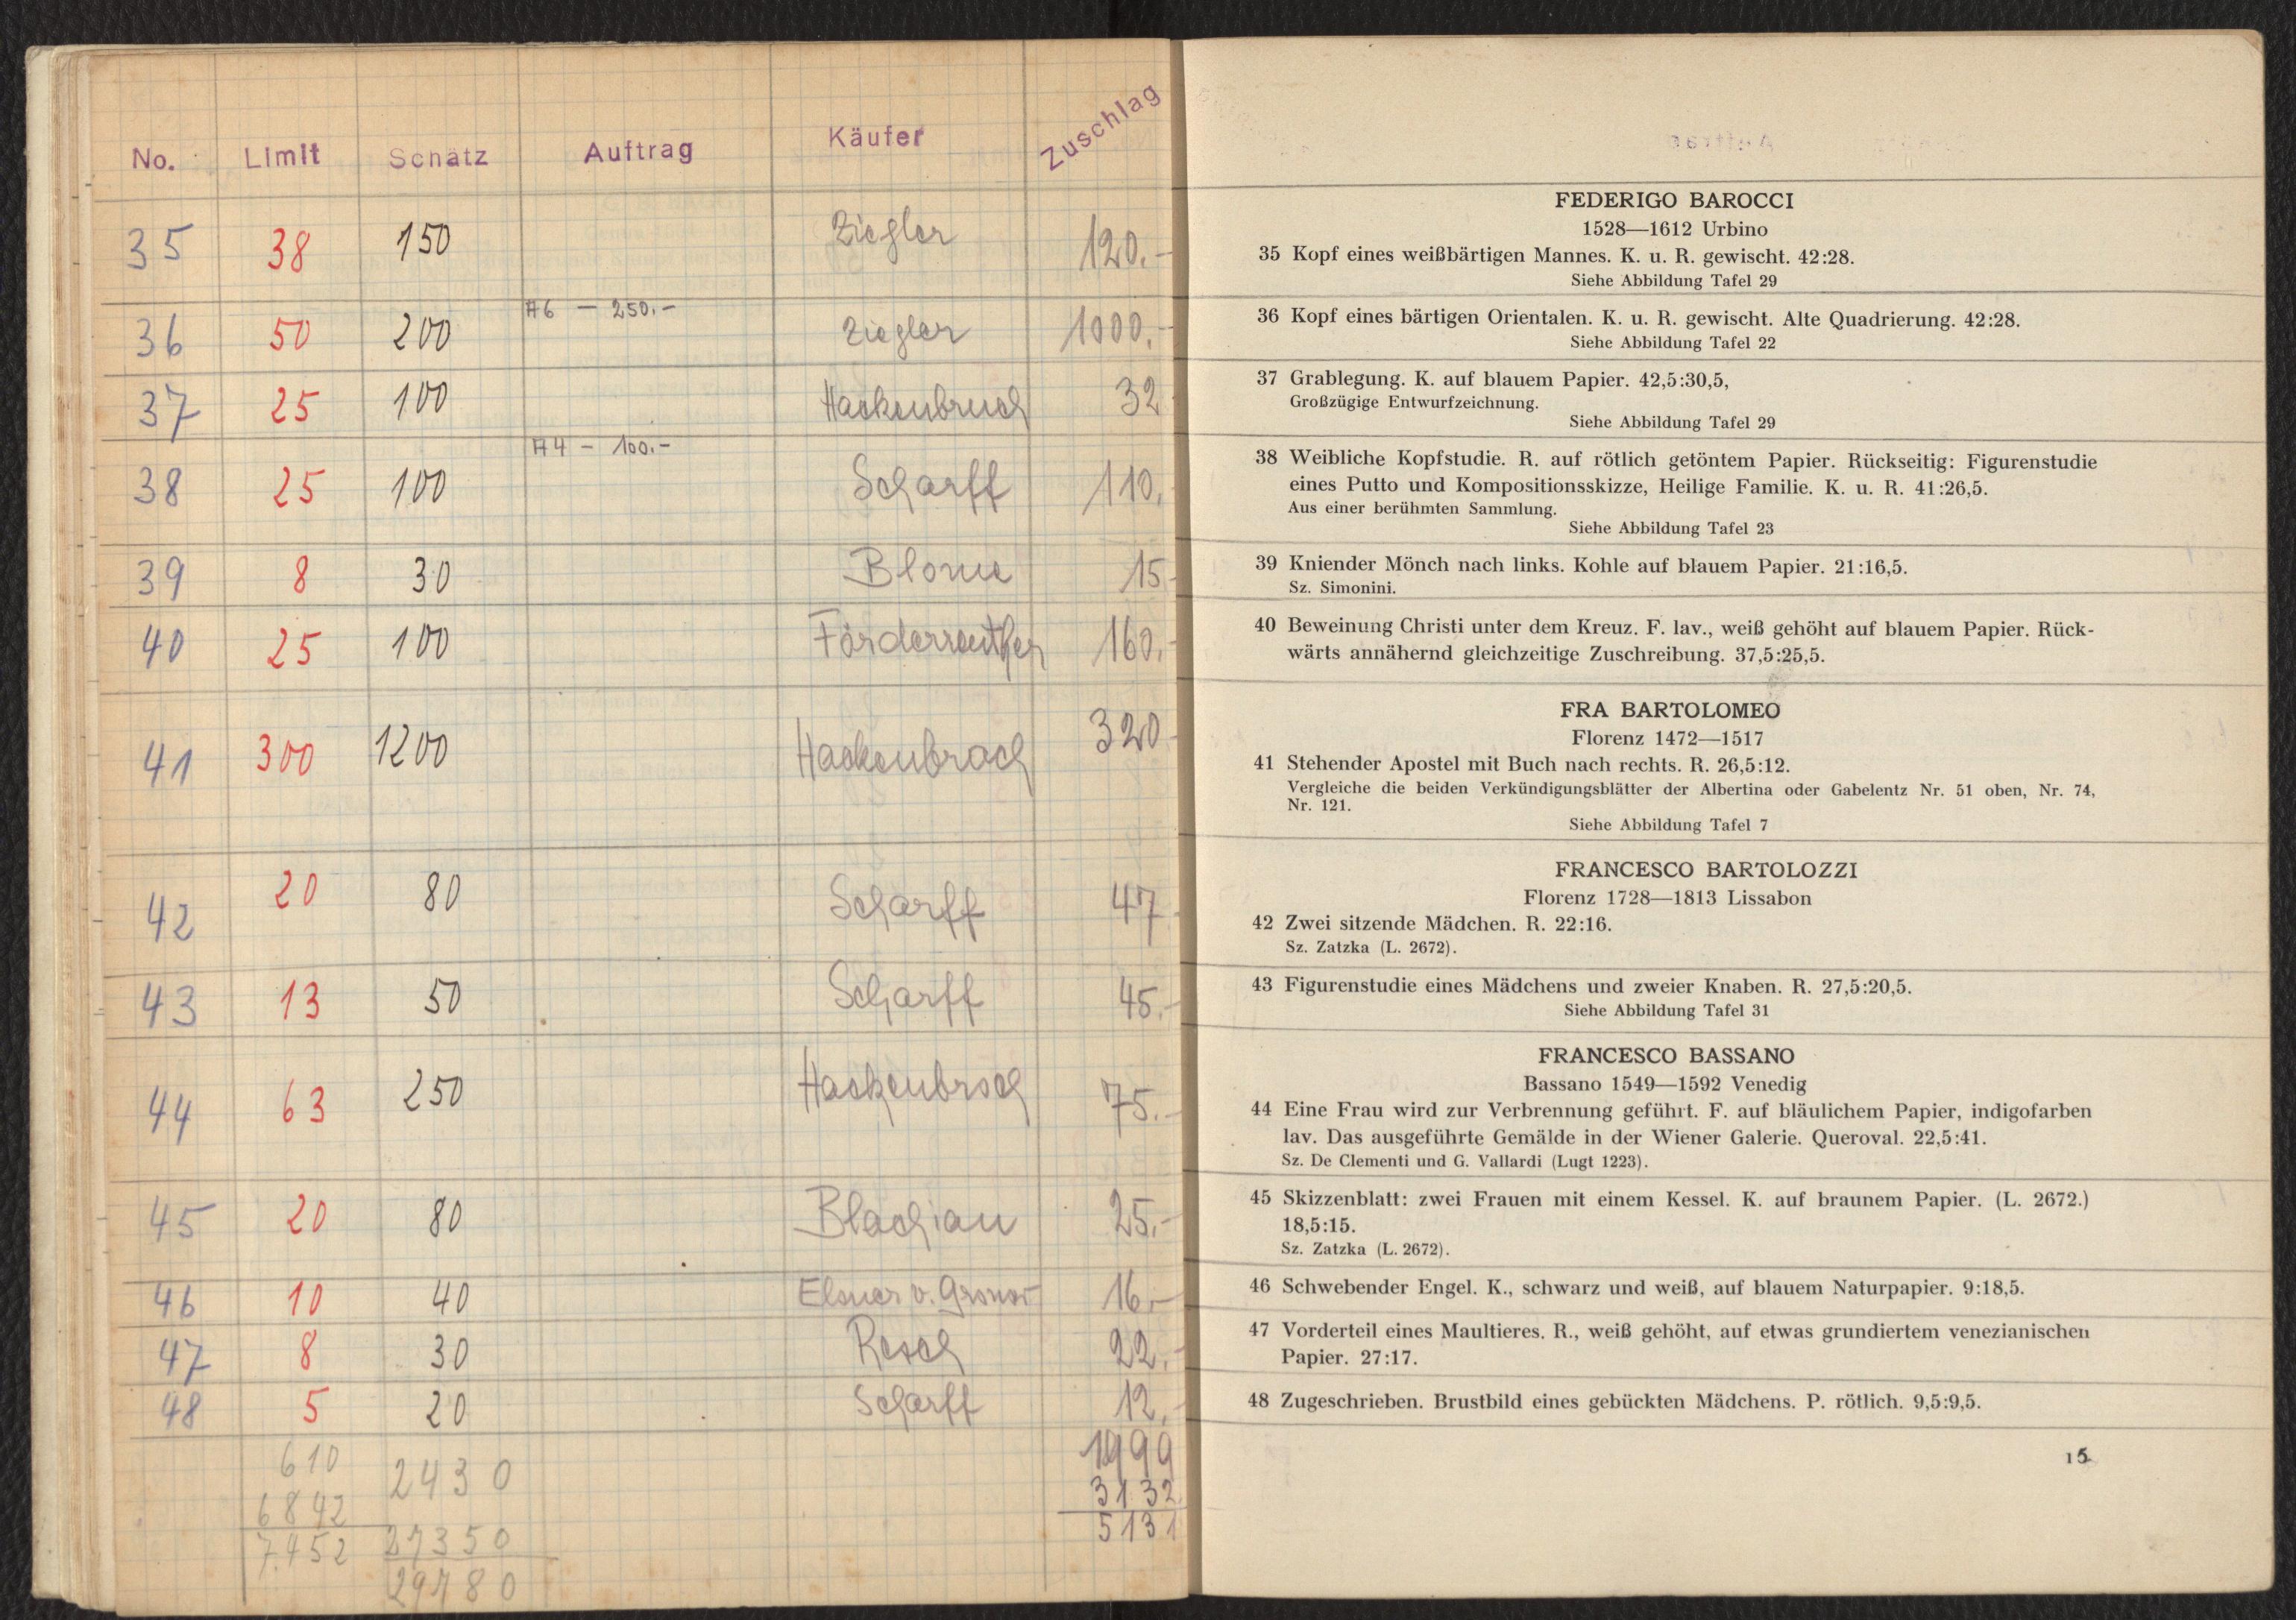 No. Limit Schätz Auftrag Käufer Zuschlag
35 38 150 Ziegler 120.-
A6 - 250.-
36 50 200 Ziegler 1000.-
37 25 100 Hackenbruch 32
A4 - 100.-
38 25 100 Scharff 110.-
39 8 30 Blome 15.-
40 25 100 Förderreuther 160.-
41 300 1200 Hackenbroch 320
42 20 80 Scharff 47
43 13 50 Scharff 45.-
44 63 250 Hackenbroch 75.-
45 20 80 Blachian 25.-
46 10 40 Elsner v. 16.-
47 8 30 Resch 22.-
48 5 20 Scharff 12.-
610 2430 1999
6842 27350 3132
7452 29780 5131
FEDERIGO BAROCCI
1528—1612 Urbino
35 Kopf eines weißbärtigen Mannes. K. u. R. gewischt. 42:28.
Siehe Abbildung Tafel 29
36 Kopf eines bärtigen Orientalen. K. u. R. gewischt. Alte Quadrierung. 42:28.
Siehe Abbildung Tafel 22
37 Grablegung. K. auf blauem Papier. 42,5:30,5,
Großzügige Entwurfzeichnung.
Siehe Abbildung Tafel 29
38 Weibliche Kopfstudie. R. auf rötlich getöntem Papier. Rückseitig: Figurenstudie
eines Putto und Kompositionsskizze, Heilige Familie. K. u. R. 41:26,5.
Aus einer berühmten Sammlung.
Siehe Abbildung Tafel 23
39 Kniender Mönch nach links. Kohle auf blauem Papier. 21:16,5.
Sz. Simonini.
40 Beweinung Christi unter dem Kreuz. F. lav., weiß gehöht auf blauem Papier. Rück-
wärts annähernd gleichzeitige Zuschreibung. 37,5:25,5.
FRA BARTOLOMEO
Florenz 1472—1517
41 Stehender Apostel mit Buch nach rechts. R. 26,5:12.
Vergleiche die beiden Verkündigungsblätter der Albertina oder Gabelentz Nr. 51 oben, Nr. 74,
Nr. 121.
Siehe Abbildung Tafel 7
FRANCESCO BARTOLOZZI
Florenz 1728—1813 Lissabon
42 Zwei sitzende Mädchen. R. 22:16.
Sz. Zatzka (L. 2672).
43 Figurenstudie eines Mädchens und zweier Knaben. R. 27,5:20,5.
Siehe Abbildung Tafel 31
FRANCESCO BASSANO
Bassano 1549—1592 Venedig
44 Eine Frau wird zur Verbrennung geführt. F. auf bläulichem Papier, indigofarben
lav. Das ausgeführte Gemälde in der Wiener Galerie. Queroval. 22,5:41.
Sz. De Clementi und G. Vallardi (Lugt 1223).
45 Skizzenblatt: zwei Frauen mit einem Kessel. K. auf braunem Papier. (L. 2672.)
18,5:15.
Sz. Zatzka (L. 2672).
46 Schwebender Engel. K., schwarz und weiß, auf blauem Naturpapier. 9:18,5.
47 Vorderteil eines Maultieres. R., weiß gehöht, auf etwas grundiertem venezianischen
Papier. 27:17.
48 Zugeschrieben. Brustbild eines gebückten Mädchens. P. rötlich. 9,5:9,5.
15